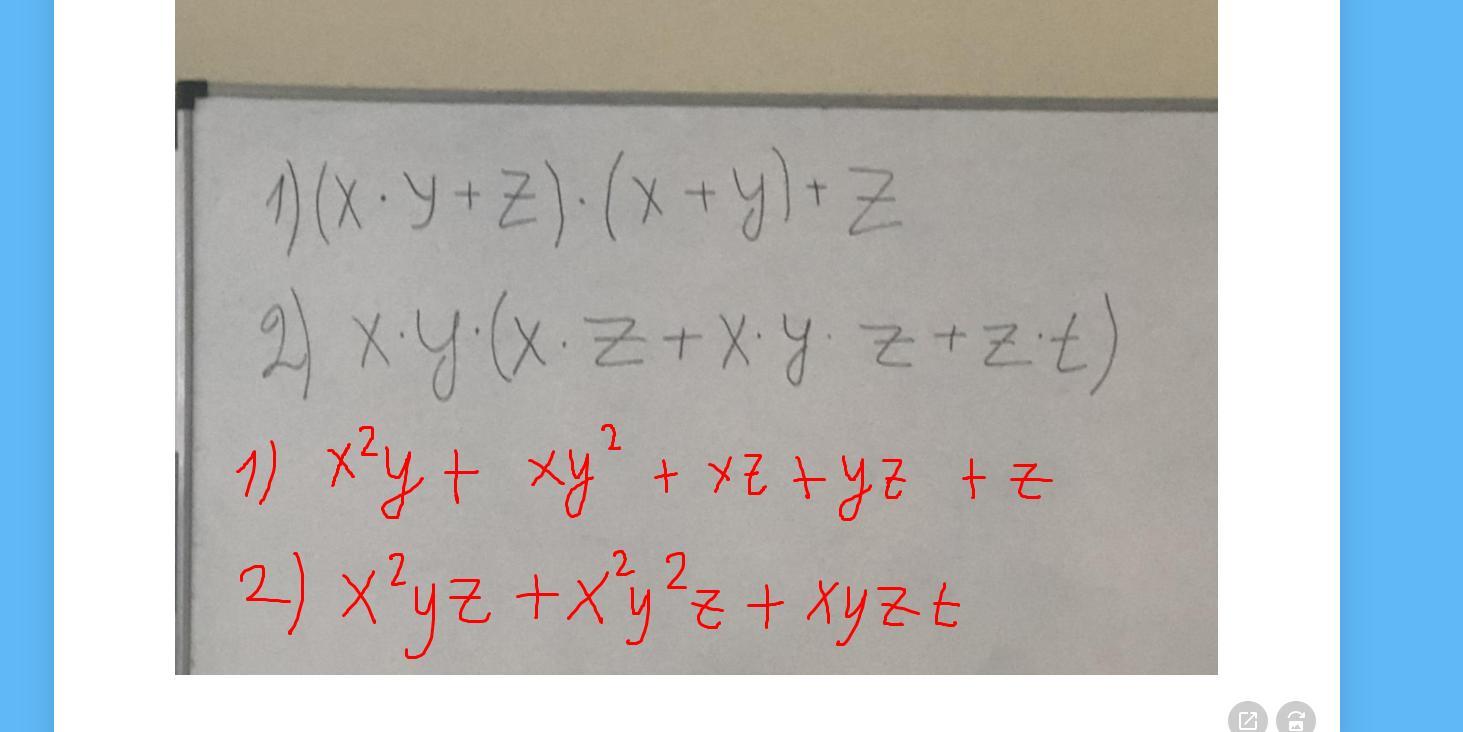 1) (x · y + z) · (x + y) + z
2) x · y · (x · z + x · y · z + z · t)
1) x²y + xy² + xz + yz + z
2) x²yz + x²y²z + xyzt